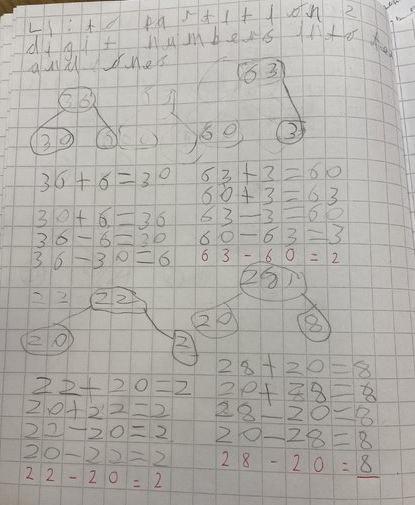 LI: to partition 2
digit numbers into ten
and ones
36 63
30 6 60 3
36+6=30 63+3=60
60+3=63
30+6=36 63-3=60
36-6=30 60-63=3
36-30=6 63-60=2
22 22 28
20 2 20 8
28+20=8
22+20=2 20+28=8
20+22=2 28-20=8
22-20=2 20-28=8
20-22=2 28-20=8
22-20=2